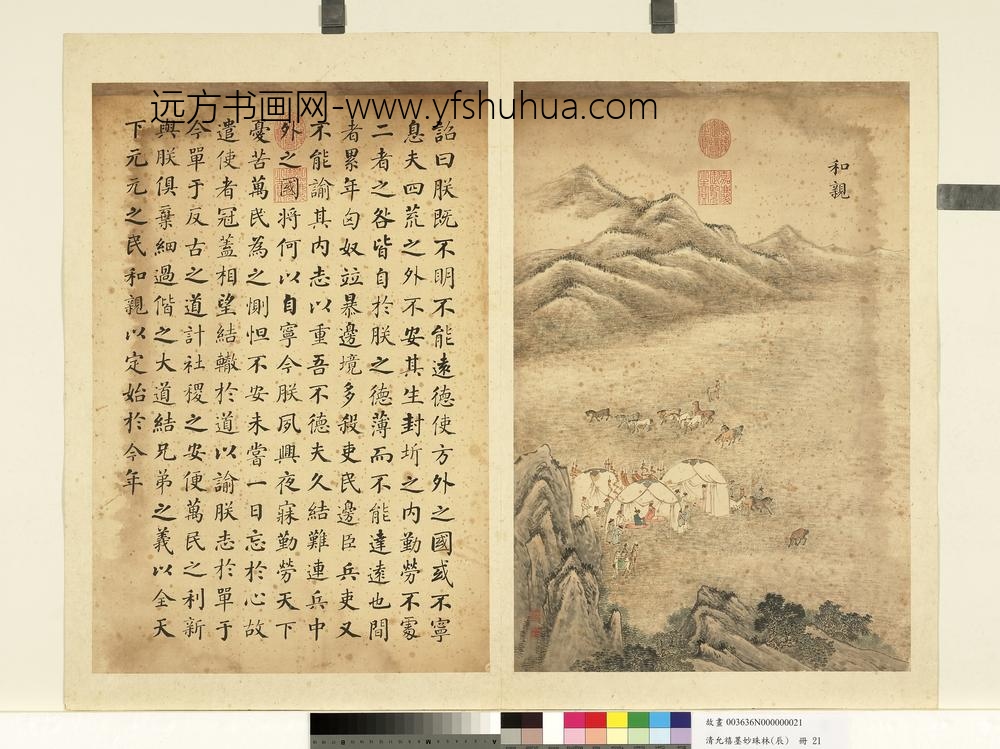 远方书画网-www.yfshuhua.com
和親
詔曰朕既不明不能遠德使方外之國或不寧
息夫四荒之外不安其生封圻之內勤勞不處
二者之咎皆自於朕之德薄而不能達遠也間
者累年匈奴竝暴邊境多殺吏民邊臣兵吏又
不能諭其內志以重吾不德夫久結難連兵中
外之國將何以自寧今朕夙興夜寐勤勞天下
憂苦萬民為之惻怛不安未嘗一日忘於心故
遣使者冠蓋相望結轍於道以諭朕志於單于
今單于反古之道計社稷之安便萬民之利新
與朕俱棄細過偕之大道結兄弟之義以全天
下元元之民和親以定始於今年
故畫 003636N000000021
清允禧墨妙珠林(辰) 冊 21